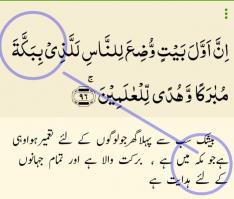 اِنَّ اَوَّلَ بَيْتٍ وُّضِعَ لِلنَّاسِ لَلَّذِيْ بِبَكَّةَ
مُبٰرَكًا وَّهُدًى لِّلْعٰلَمِيْنَ ۚ ﴿٩٦﴾
بیشک سب سے پہلا گھر جو لوگوں کے لئے تعمیر ہوا وہی
ہے جو مکہ میں ہے ، برکت والا ہے اور تمام جہانوں
کے لئے ہدایت ہے